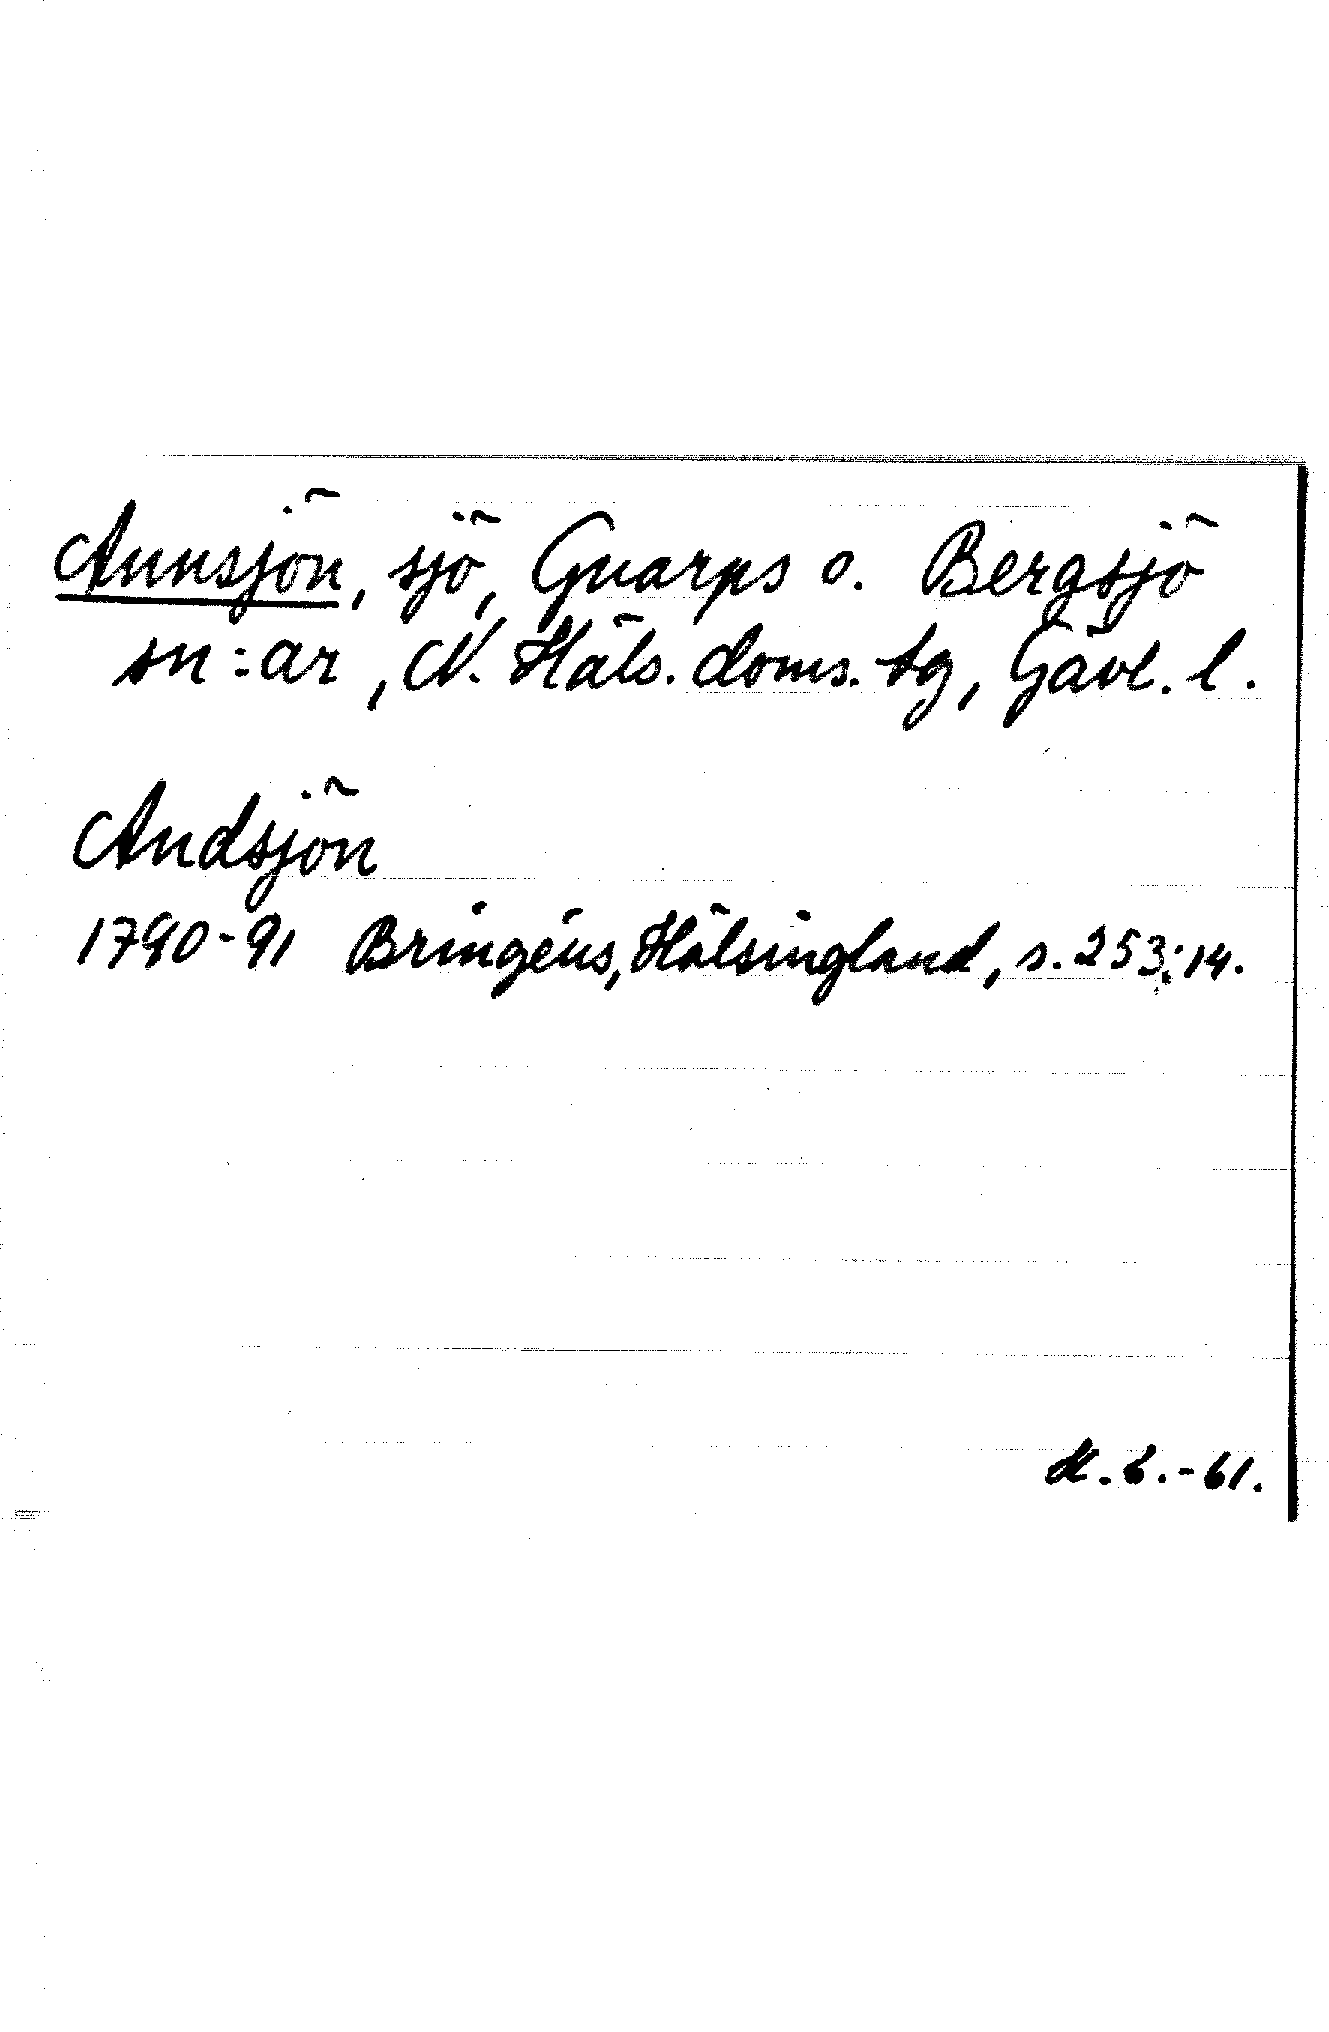 Annsjön, sjö, Gnarps o. Bergsjö
sn:ar, N. Häls. doms. tg, Gävl. l.
Andsjön
1790-91 Bringéus, Hälsingland, s. 253:14.
-61.